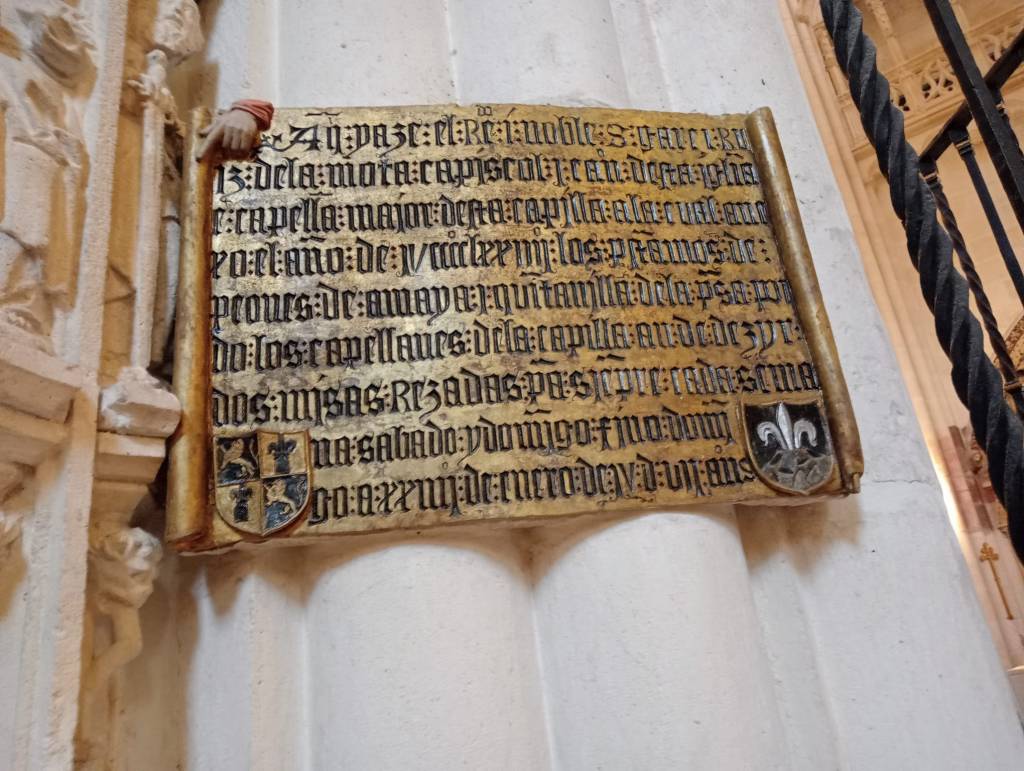 Aq̃:yaze:el:Rẽ:i:noble:S:Garci:Ru
iz:dela:mota:capiscol:i:can:desta:iglia
e:capellã:major:desta:capilla:ala:cual:ane
xo:el:año:de:
los:p̃stamos:de:
peones:de:amaya:i:quĩtanilla:dela:p̃sa:
do:los:capellanes:dela:capilla:an:de:dezyr:
dos:mjsas:Rezadas:p̃a:sĩepre:cada:sema
na:sabado:ydomĩgo:fino:domĩ
go:a:xxiiij:de:enero:de: